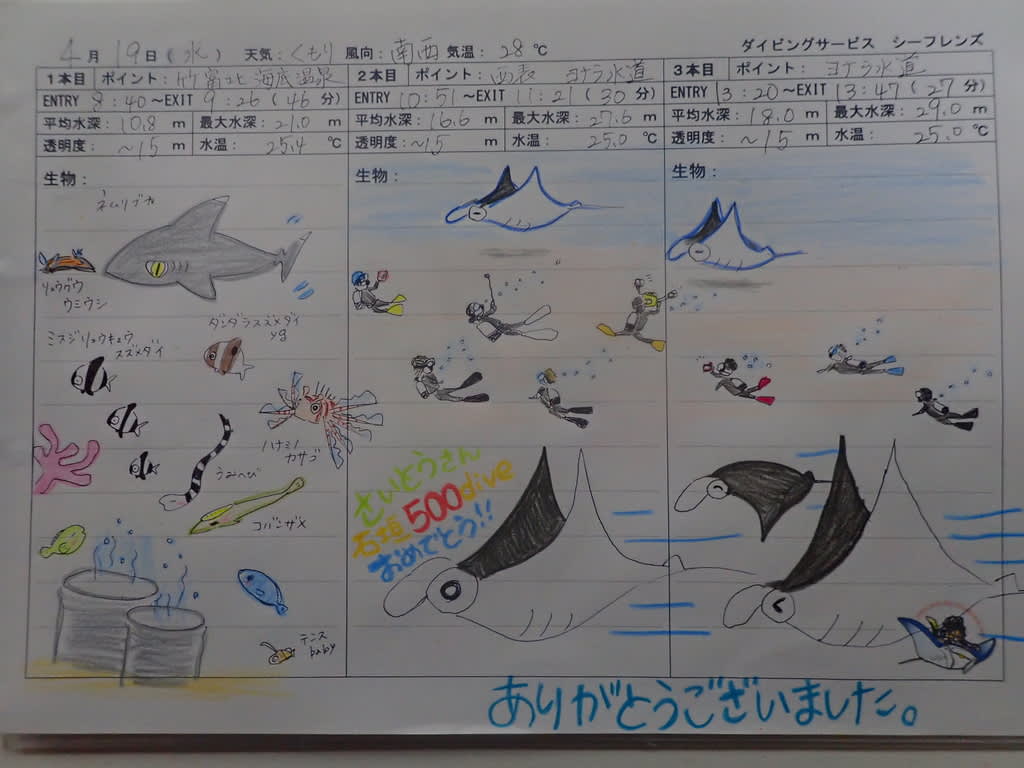 4月19日(水) 天気：くもり 風向：南西 気温：28℃
ダイビングサービス シーフレンズ
1本目 ポイント：竹富北 海底温泉
ENTRY 8：40～EXIT 9：26(46分)
平均水深：10.8 m 最大水深：21.0 m
透明度：～15 m 水温：25.4 ℃
生物：
ネムリブカ
リュウグウ
ウミウシ
ミスジリュウキュウ
スズメダイ
ダンダラスズメダイ
yg
ハナミノ
カサゴ
うみへび
コバンザメ
テンス
baby
2本目 ポイント：西表 ヨナラ水道
ENTRY 10：51～EXIT 11：21(30分)
平均水深：16.6 m 最大水深：27.6 m
透明度：～15 m 水温：25.0 ℃
生物：
さいとうさん
石垣500dive
おめでとう!!
3本目 ポイント：ヨナラ水道
ENTRY 13：20～EXIT 13：47(27分)
平均水深：18.0 m 最大水深：29.0 m
透明度：～15 m 水温：25.0 ℃
生物：
ありがとうございました。